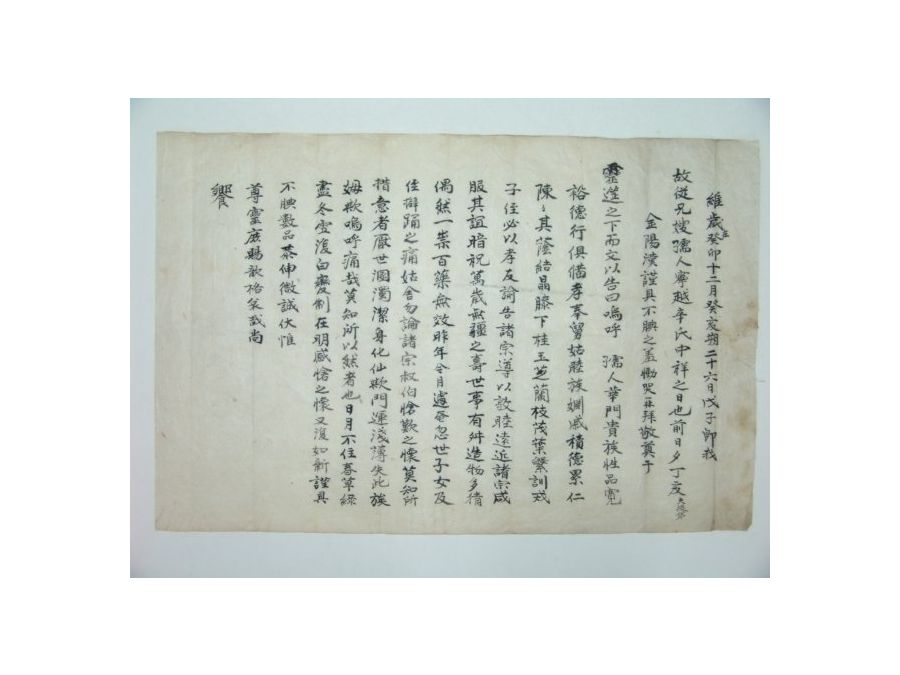 維歲次癸卯十二月癸亥朔二十六日戊子卽我
故從兄嫂孺人寧越辛氏中祥之日也前日夕丁亥
金陽漢謹具不腆之羞慟哭再拜敬奠于
靈筵之下而文以告曰嗚呼 孺人華門貴族性品寬
裕德行俱備孝奉舅姑睦族婣戚積德累仁
陳陳其蔭結晶膝下桂玉芝蘭枝茂葉繁訓戒
子侄必以孝友諭告諸宗導以敦睦遠近諸宗咸
服其誼暗祝萬歲無疆之壽世事有舛造物多猜
偶然一祟百藥無效昨年今月遽爾忽世子女及
侄擗踊之痛姑舍勿論諸宗叔伯愴歎之懷莫知所
措意者厭世溷濁潔身化仙歟門運淺薄失此族
姆歟嗚呼痛哉莫知所以然者也日月不住春草綠
盡冬雪復白變制在明感愴之懷又復如新謹具
不腆數品恭伸微誠伏惟
尊靈庶賜歆格矣哉尙
饗